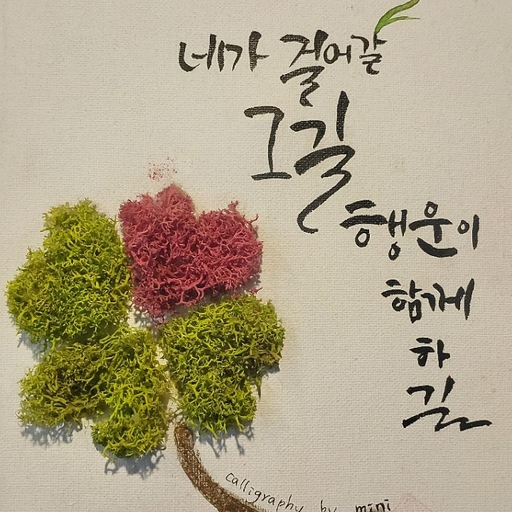 네가 걸어갈
그길
행운이
함께
하
길
calligraphy by mini